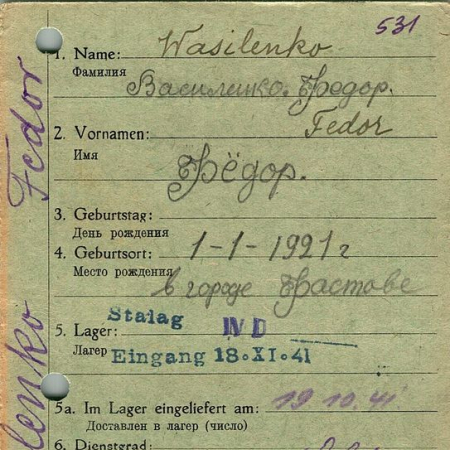 531
1. Name: Wasilenko
Фамилия Василенко Фёдор.
2. Vornamen: Fedor
Имя Фёдор.
3. Geburtstag:
День рождения
4. Geburtsort: 1-1-1921 г
Место рождения в городе Фастове
Stalag IV D
5. Lager:
Лагер Eingang 18.XI.41
5a. Im Lager eingeliefert am: 19 10.41
Доставлен в лагер (число)
6. Dienstgrad:
Fedor
lenko